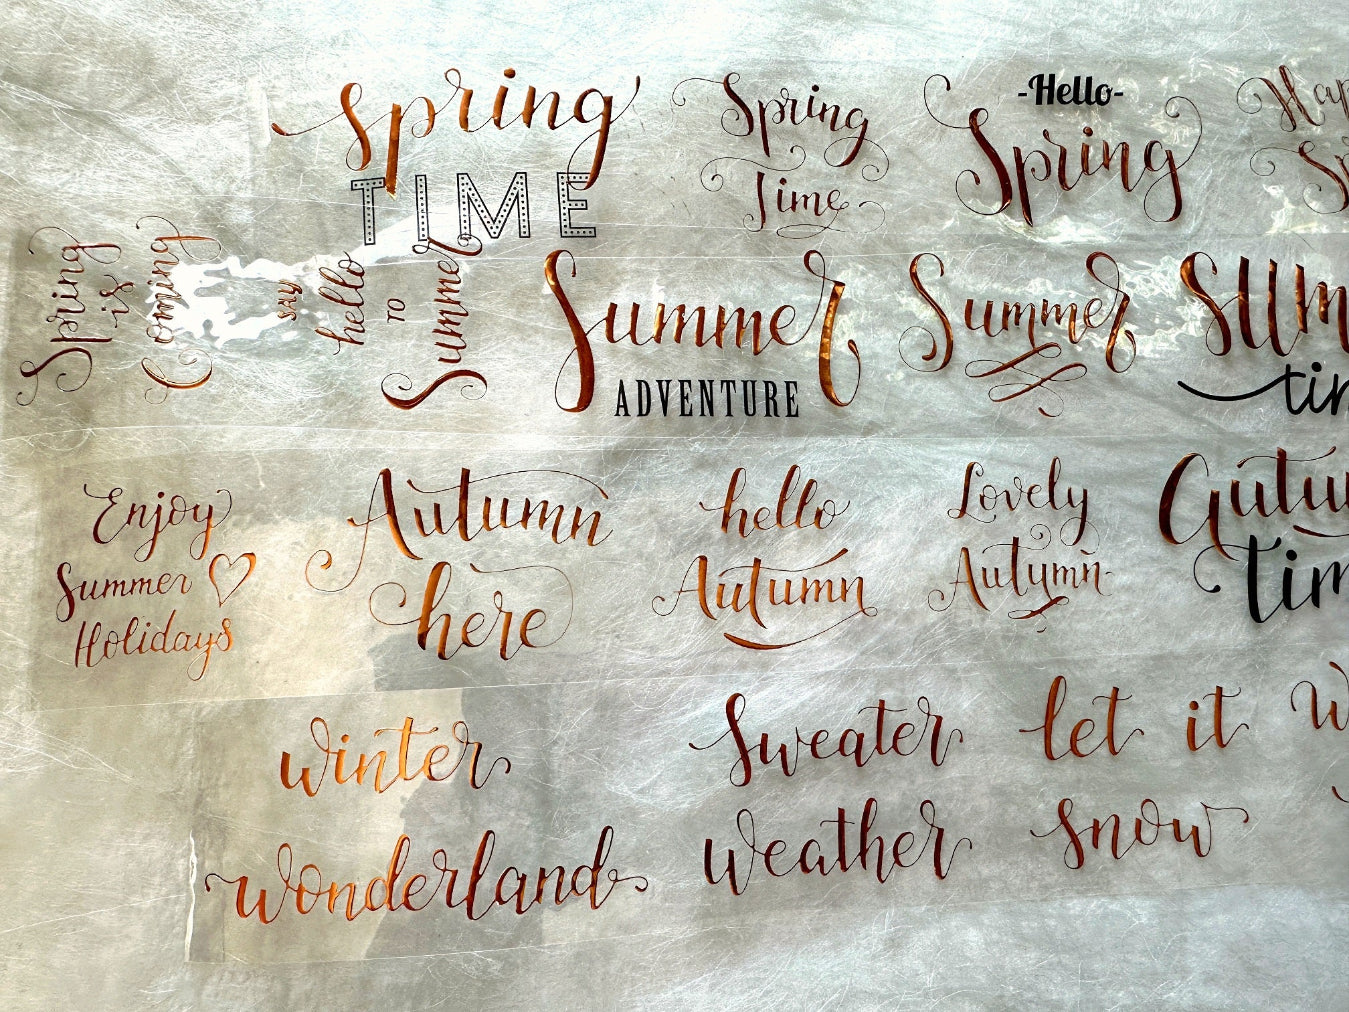 Spring
TIME
Spring
Time
-Hello-
Spring
Spring
is
Coming
SAY
hello
TO
Summer
Summer
ADVENTURE
Summer
Enjoy
Summer
Holidays
Autumn
here
hello
Autumn
Lovely
Autumn
winter
wonderland
Sweater
weather
let it
snow